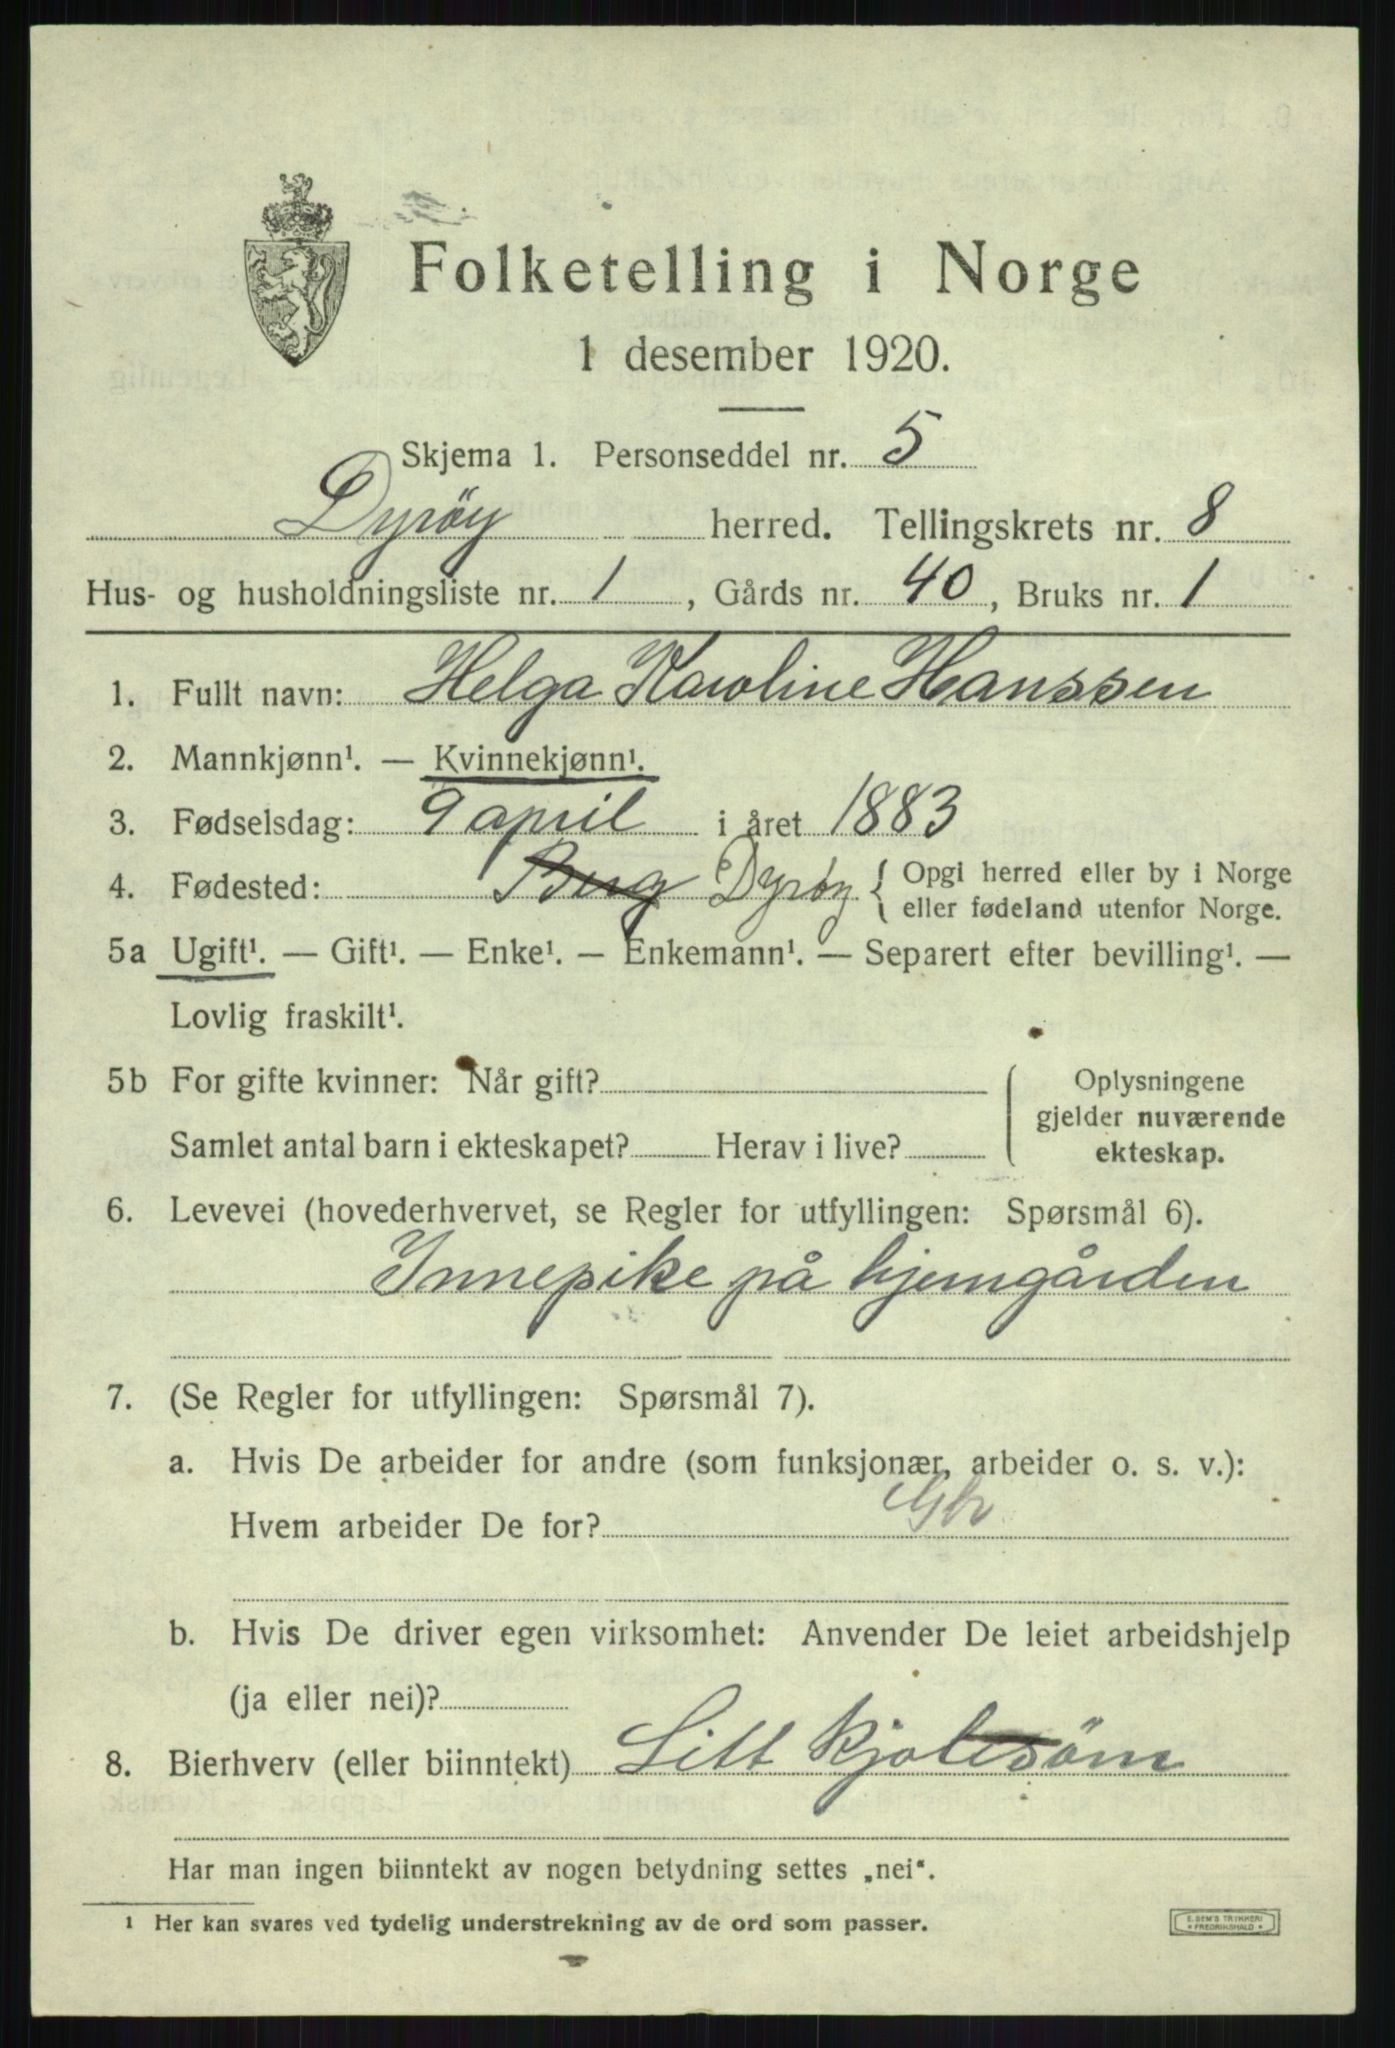 Folketelling i Norge
1 desember 1920.
Skjema 1. Personseddel nr. 5
Dyrøy herred. Tellingskrets nr. 8
Hus- og husholdningsliste nr. 1, Gårds nr. 40, Bruks nr. 1
1. Fullt navn: Helga Karoline Hanssen
2. Mannkjønn¹. — Kvinnekjønn¹.
3. Fødselsdag: 9 april i året 1883
4. Fødested: Berg Dyrøy { Opgi herred eller by i Norge
eller fødeland utenfor Norge.
5a Ugift¹. — Gift¹. — Enke¹. — Enkemann¹. — Separert efter bevilling¹. —
Lovlig fraskilt¹.
5b For gifte kvinner: Når gift?
Samlet antal barn i ekteskapet? Herav i live?
Oplysningene
gjelder nuværende
ekteskap.
6. Levevei (hovederhvervet, se Regler for utfyllingen: Spørsmål 6).
Innepike på hjemgården
7. (Se Regler for utfyllingen: Spørsmål 7).
a. Hvis De arbeider for andre (som funksjonær, arbeider o. s. v.):
Hvem arbeider De for?
b. Hvis De driver egen virksomhet: Anvender De leiet arbeidshjelp
(ja eller nei)?
8. Bierhverv (eller biinntekt) Litt kjolesöm
Har man ingen biinntekt av nogen betydning settes „nei“.
¹ Her kan svares ved tydelig understrekning av de ord som passer.
E. SEM'S TRYKKERI
* FREDRIKSHALD *